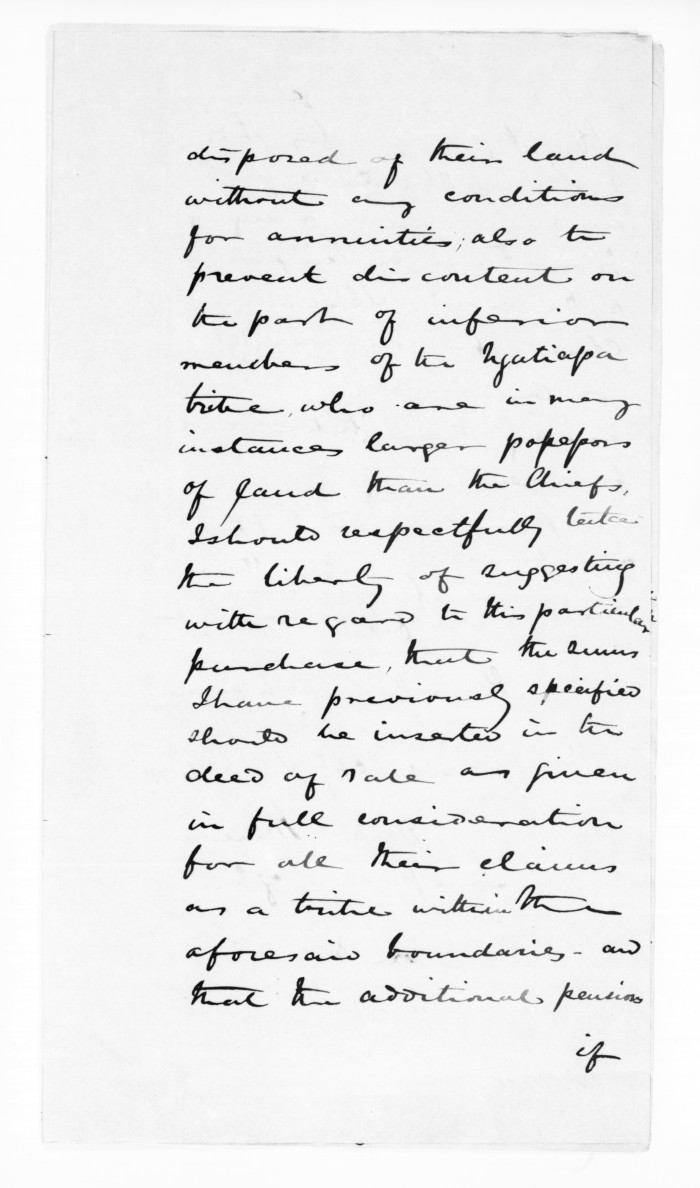 disposed of their land
without any conditions
for annuities; also to
prevent discontent on
the part of inferior
members of the Ngatiapa
tribe, who are in many
instances larger possessors
of land than the Chiefs,
I should respectfully take
the liberty of suggesting
with regard to this particular
purchase, that the sums
I have previously specified
should be inserted in the
deed of sale as given
in full consideration
for all their claims
as a tribe within the
aforesaid boundaries - and
that the additional pensions
if